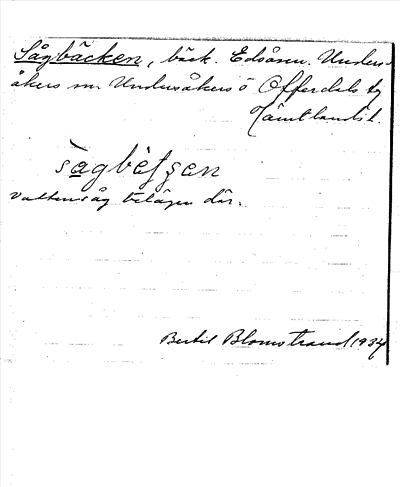 Sågbäcken, bäck. Edsåsen. Unders-
åkers sn. Undersåkers o Offerdals tg
Jämtlands l.
vattensåg belägen där.
Bertil Blomstrand 1934